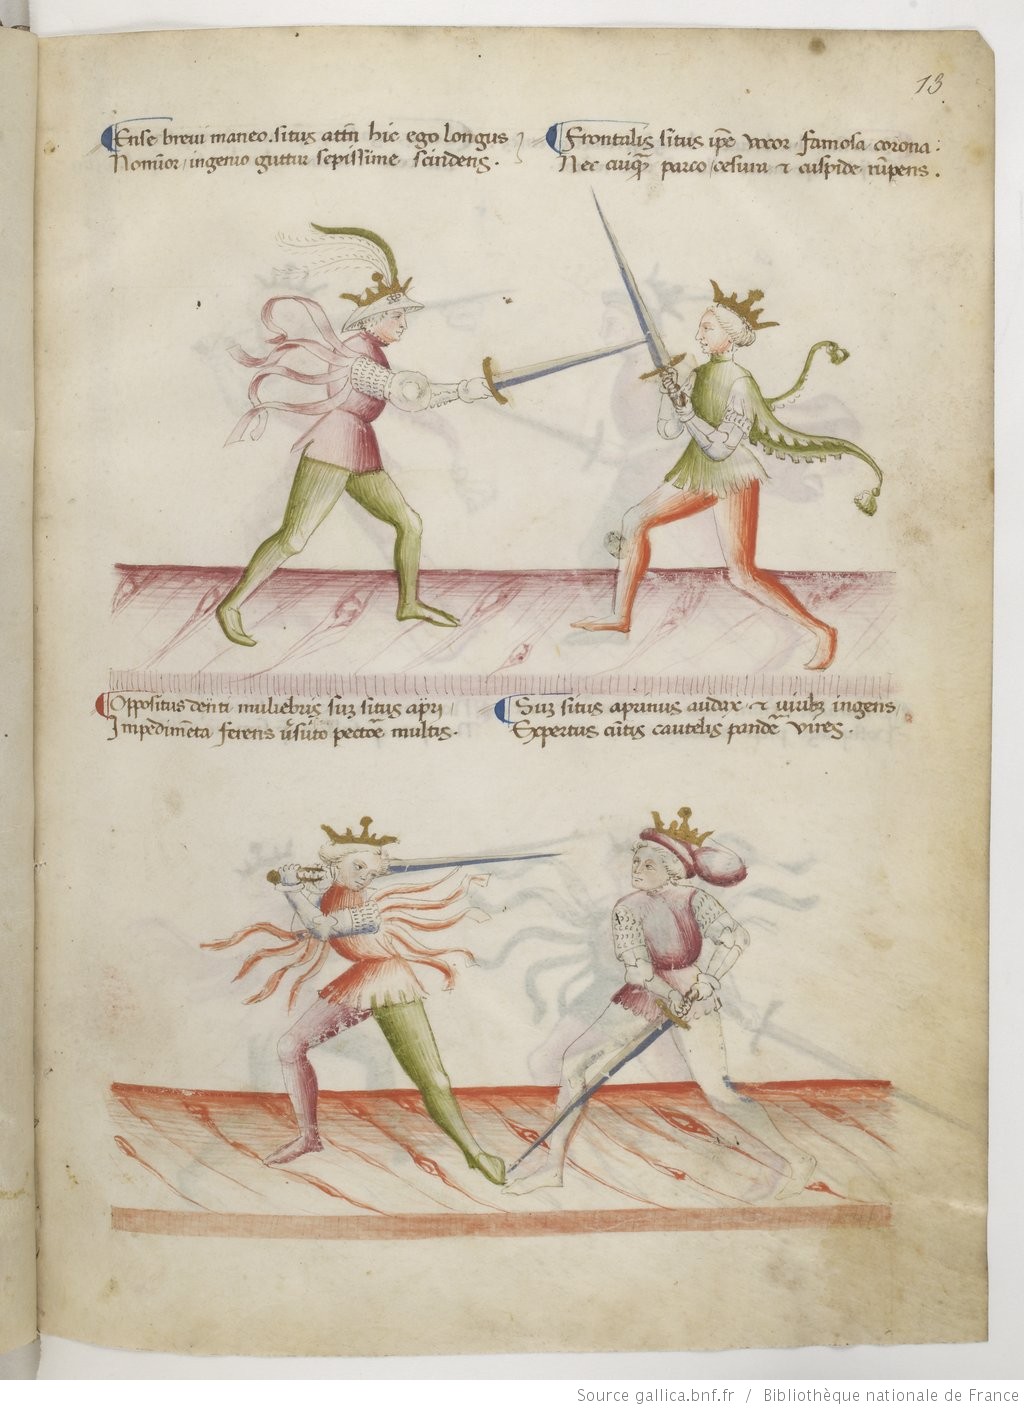 13
Ense breui maneo. situs attñ hic ego longus
Nomĩor, ingenio guttur sepissime scindens.
Frontalis situs ip̃e vocor famosa corona:
Nec cuiq̃ parco, cesura et cuspide rũpens.
Oppositus denti muliebris suꝫ situs apri,
Impedimẽta ferens multis.
Suꝫ situs aprinus audax et ingens,
Expertus cautelis pandẽ vires.
Source gallica.bnf.fr / Bibliothèque nationale de France